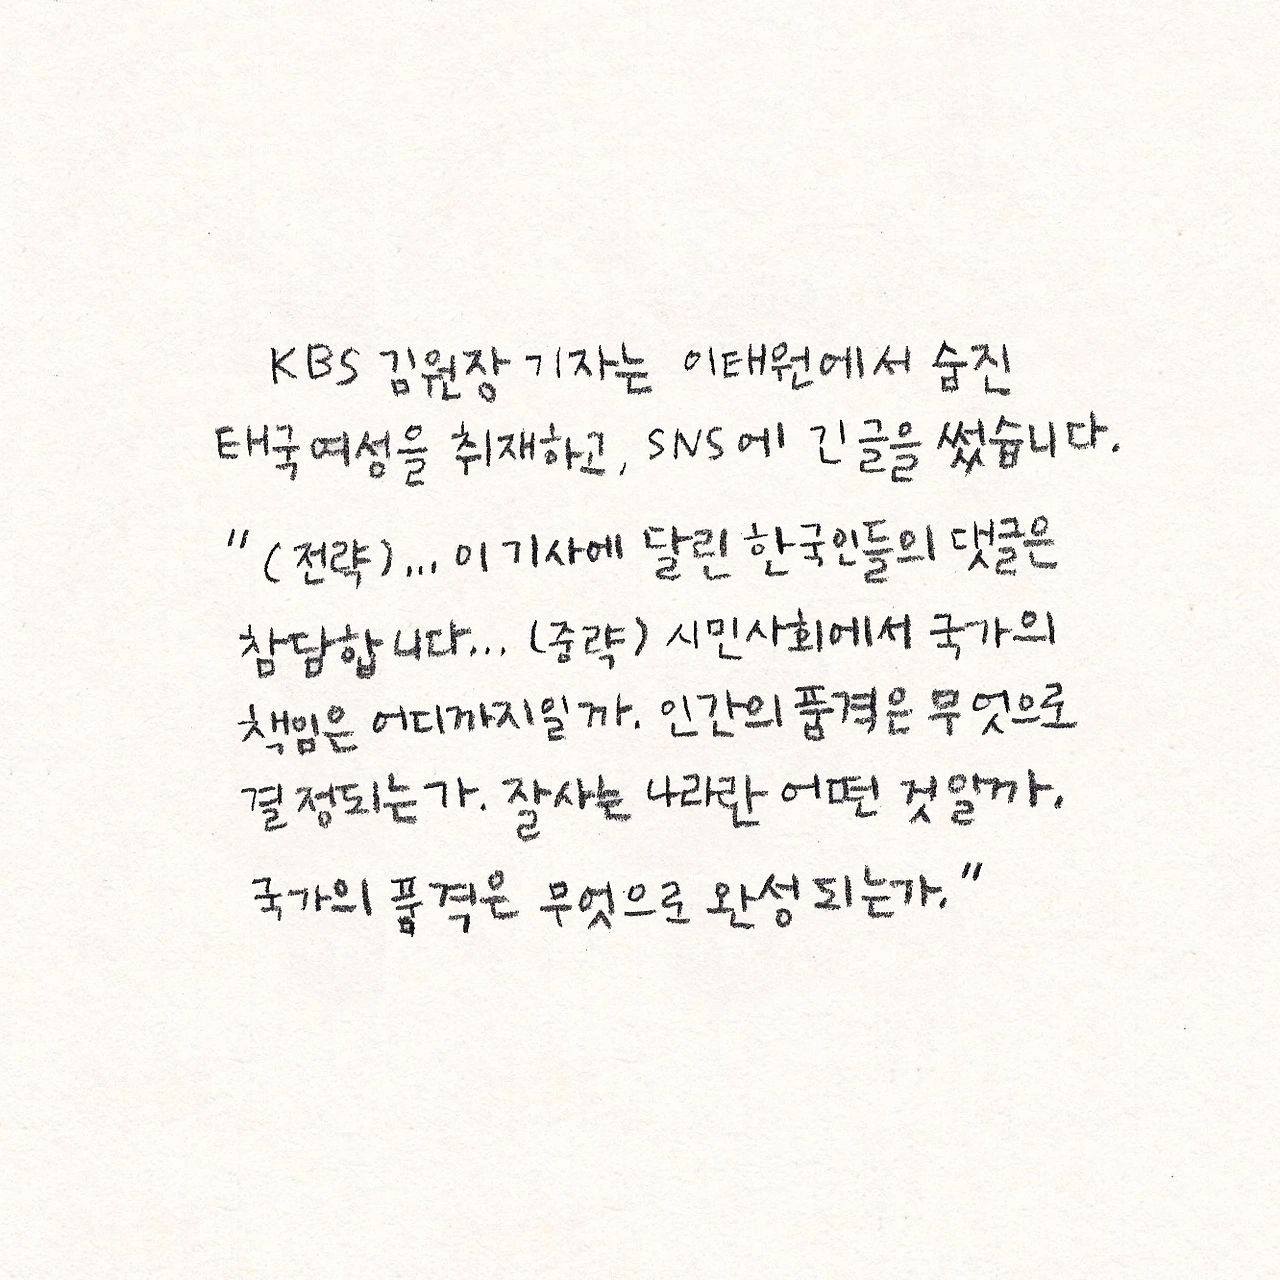 KBS 김원장 기자는 이태원에서 숨진
태국여성을 취재하고, SNS에 긴글을 썼습니다.
"(전략)... 이 기사에 달린 한국인들의 댓글은
참담합니다... (중략) 시민사회에서 국가의
책임은 어디까지일까. 인간의 품격은 무엇으로
결정되는가. 잘사는 나라란 어떤 것일까.
국가의 품격은 무엇으로 완성되는가."